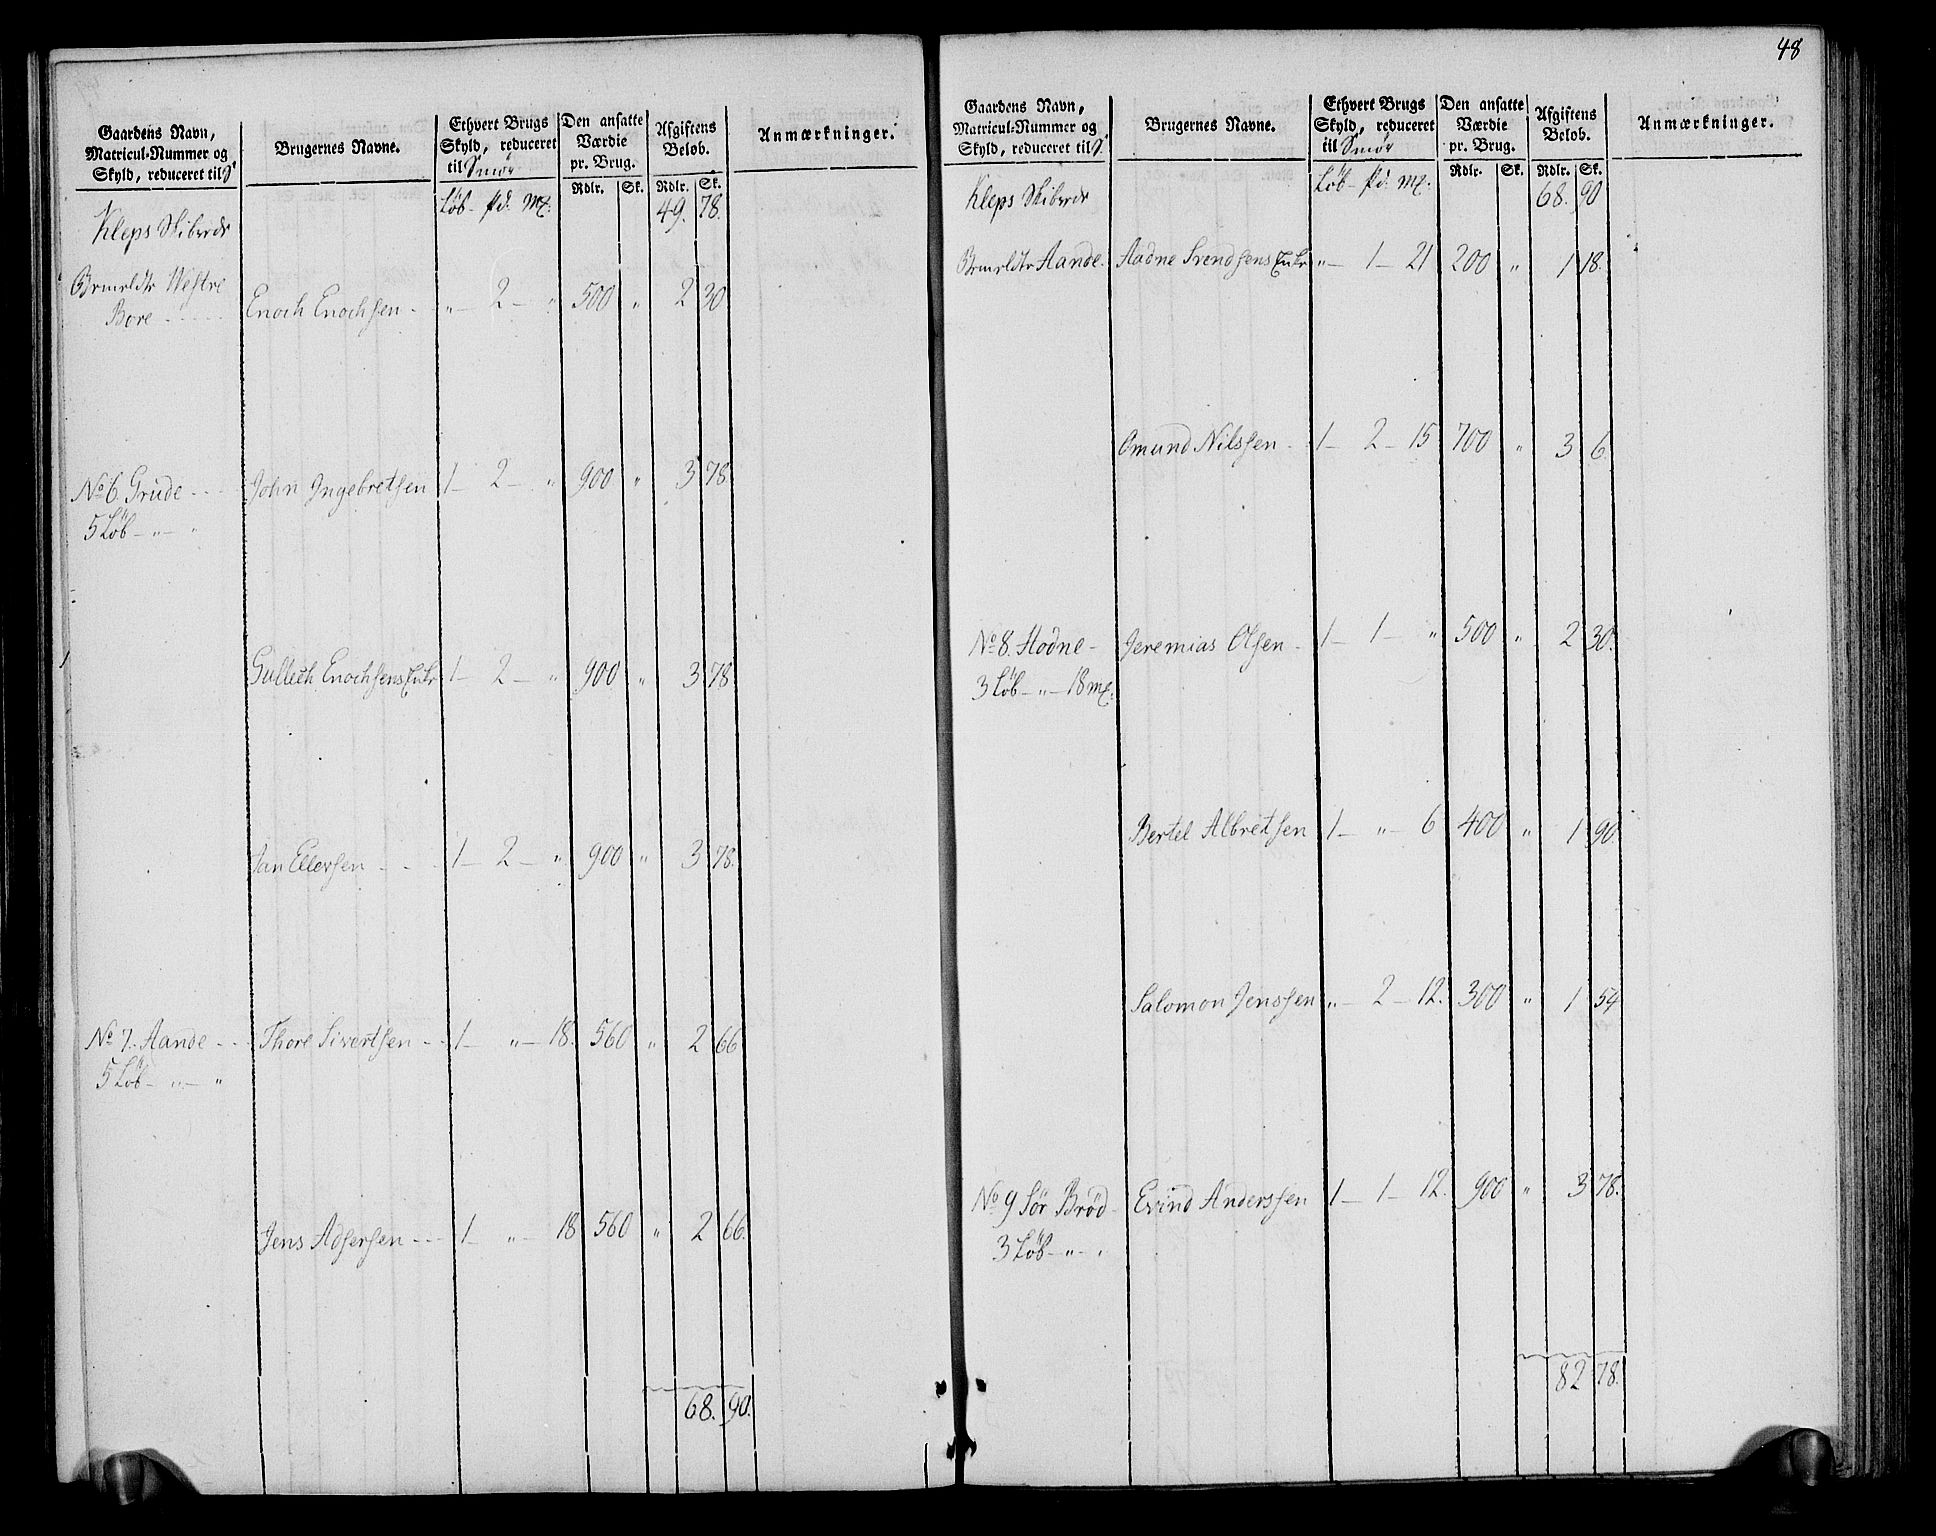 Gaardens Navn,
Matricul-Nummer og
Skyld, reduceret til S
Brugernes Navne.
Ethvert Brugs
Skyld, reduceret
til Smør
Den ansatte
Værdie
pr. Brug.
Afgiftens
Beløb.
Anmærkninger.
Rdlr. Sk. Rdlr. Sk.
Kleps Skibrede Løb - pd: mk: 49. 78.
Westre
Bore - Enoch Enochsen - " - 2 - " 500 " 2 30
No 6. Grude - John Ingebretsen 1 - 2 - " 900 " 3 78.
5 Løb - " - "
Gullech Enochsens Enke 1 - 2 - " 900 " 3 78
Jan Ellersen - 1 - 2 - " 900 " 3 78.
No 7. Aande - Thore Sivertsen - 1 - " - 18. 560 " 2 66
5 Løb - " - "
Jens Adsersen - 1 - " - 18 560 " 2 66.
68. 90.
48
Gaardens Navn,
Matricul-Nummer og
Skyld, reduceret til S
Brugernes Navne.
Ethvert Brugs
Skyld, reduceret
til Smør
Den ansatte
Værdie
pr. Brug.
Afgiftens
Beløb.
Anmærkninger.
Rdlr. Sk. Rdlr. Sk.
Kleps Skibrede Løb - pd: mk: 68. 90
Aande. Aadne Svendsens Enke " - 1 - 21 200 " 1 18.
Omund Nilssen - 1 - 2 - 15 700 " 3 6.
No 8. Hodne - Jeremias Olsen - 1 - 1 - " 500 " 2 30.
3 Løb - " - 18 mk:
Bertel Albretsen 1 - " - 6 400 " 1 90.
Salomon Jenssen " - 2 - 12. 300 " 1 54
No 9 Sør Brød - Evind Anderssen 1 - 1 - 12. 900 " 3 78.
3 Løb - " - "
82 78.